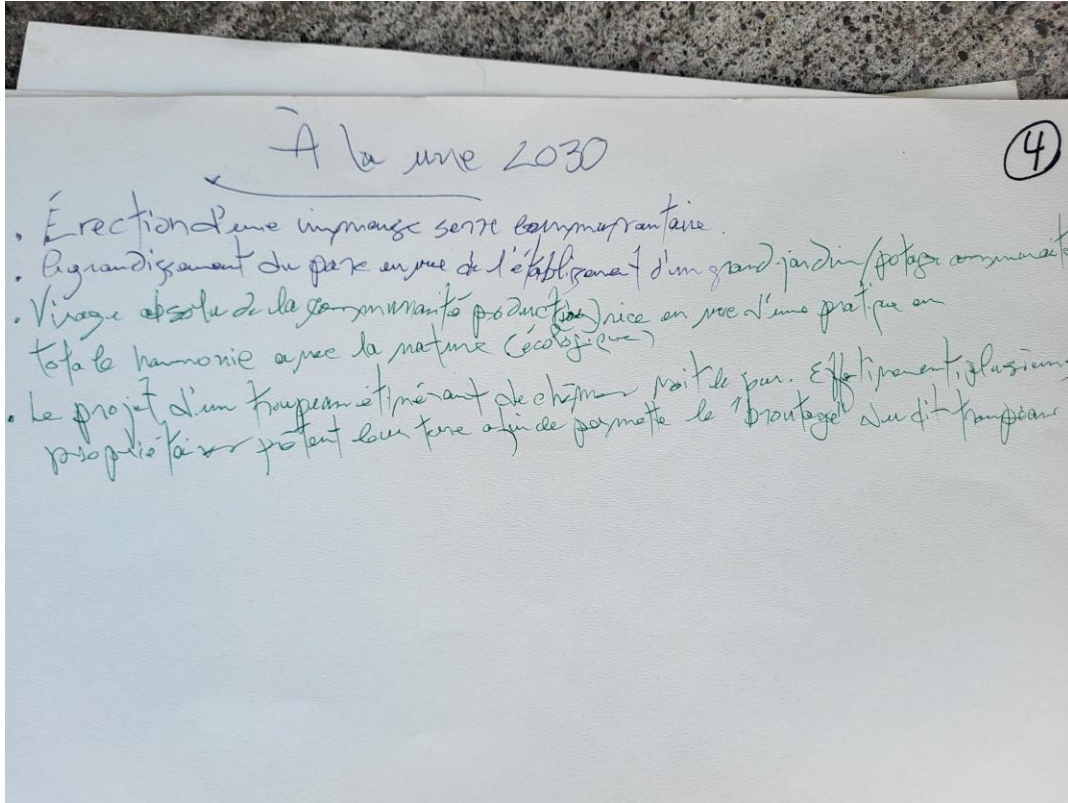 À la une 2030
4
. Érection d'une immense serre communautaire.
. Agrandissement du parc en vue de l'établissement d'un grand jardin/potager communauta
. Virage absolu de la communauté productrice en vue d'une pratique en
totale harmonie avec la nature (écologique)
. Le projet d'un troupeau itinérant de chèvres voit le jour. Effectivement, plusieurs
propriétaires prêtent leur terre afin de permettre le "broutage" du dit troupeau